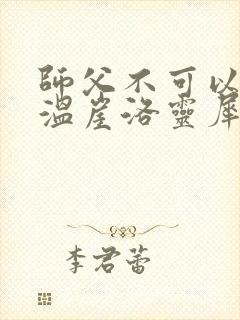 師父不可以
溫崖洛靈犀
李君蕾